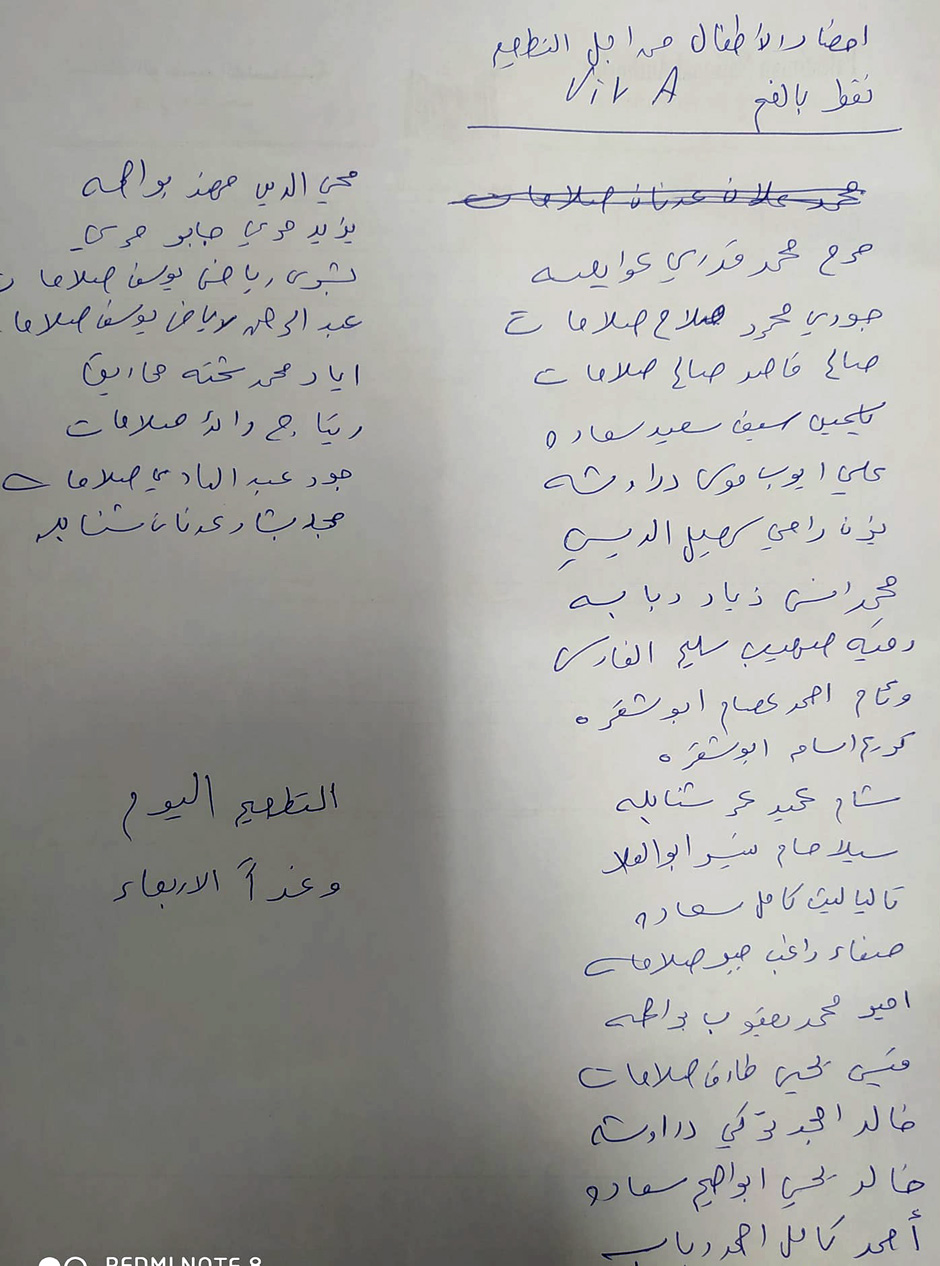 احضار الأطفال من اجل التطعيم
نقط بالفم Vit A
محمد علاء عدنان صلاحات
مرح محمد قدري عوايصه
جودي محمود صلاح صلاحات
صالح قاصد صالح صلاحات
سيف سعيد سعاده
علي ايوب موسى دراوشه
يزن رامي سهيل الديسي
محمد انس زياد دبابسه
رقيه صهيب سليم الفارس
وئام احمد عصام ابوشقره
كرم اسامه ابوشقره
شام عميد عمر شنابله
سيلا حسام منير ابوالعلا
تاليا ليث كامل سعاده
صفاء راغب جبر صلاحات
امير محمد يعقوب بواطنه
قيس يحيى طارق صلاحات
خالد امجد تركي دراوشه
خالد يحيى ابراهيم سعاده
أحمد كامل احمد
محي الدين مهند بواطنه
يزيد مرعي جابر مرعي
بشرى رياض يوسف صلاحات
عبد الرحمن رياض يوسف صلاحات
اياد محمد محاريق
ريتاج رائد صلاحات
جود عبد الهادي صلاحات
مجد بشار عدنان شنابله
التطعيم اليوم
وغداً الاربعاء
REDMI NOTE 8